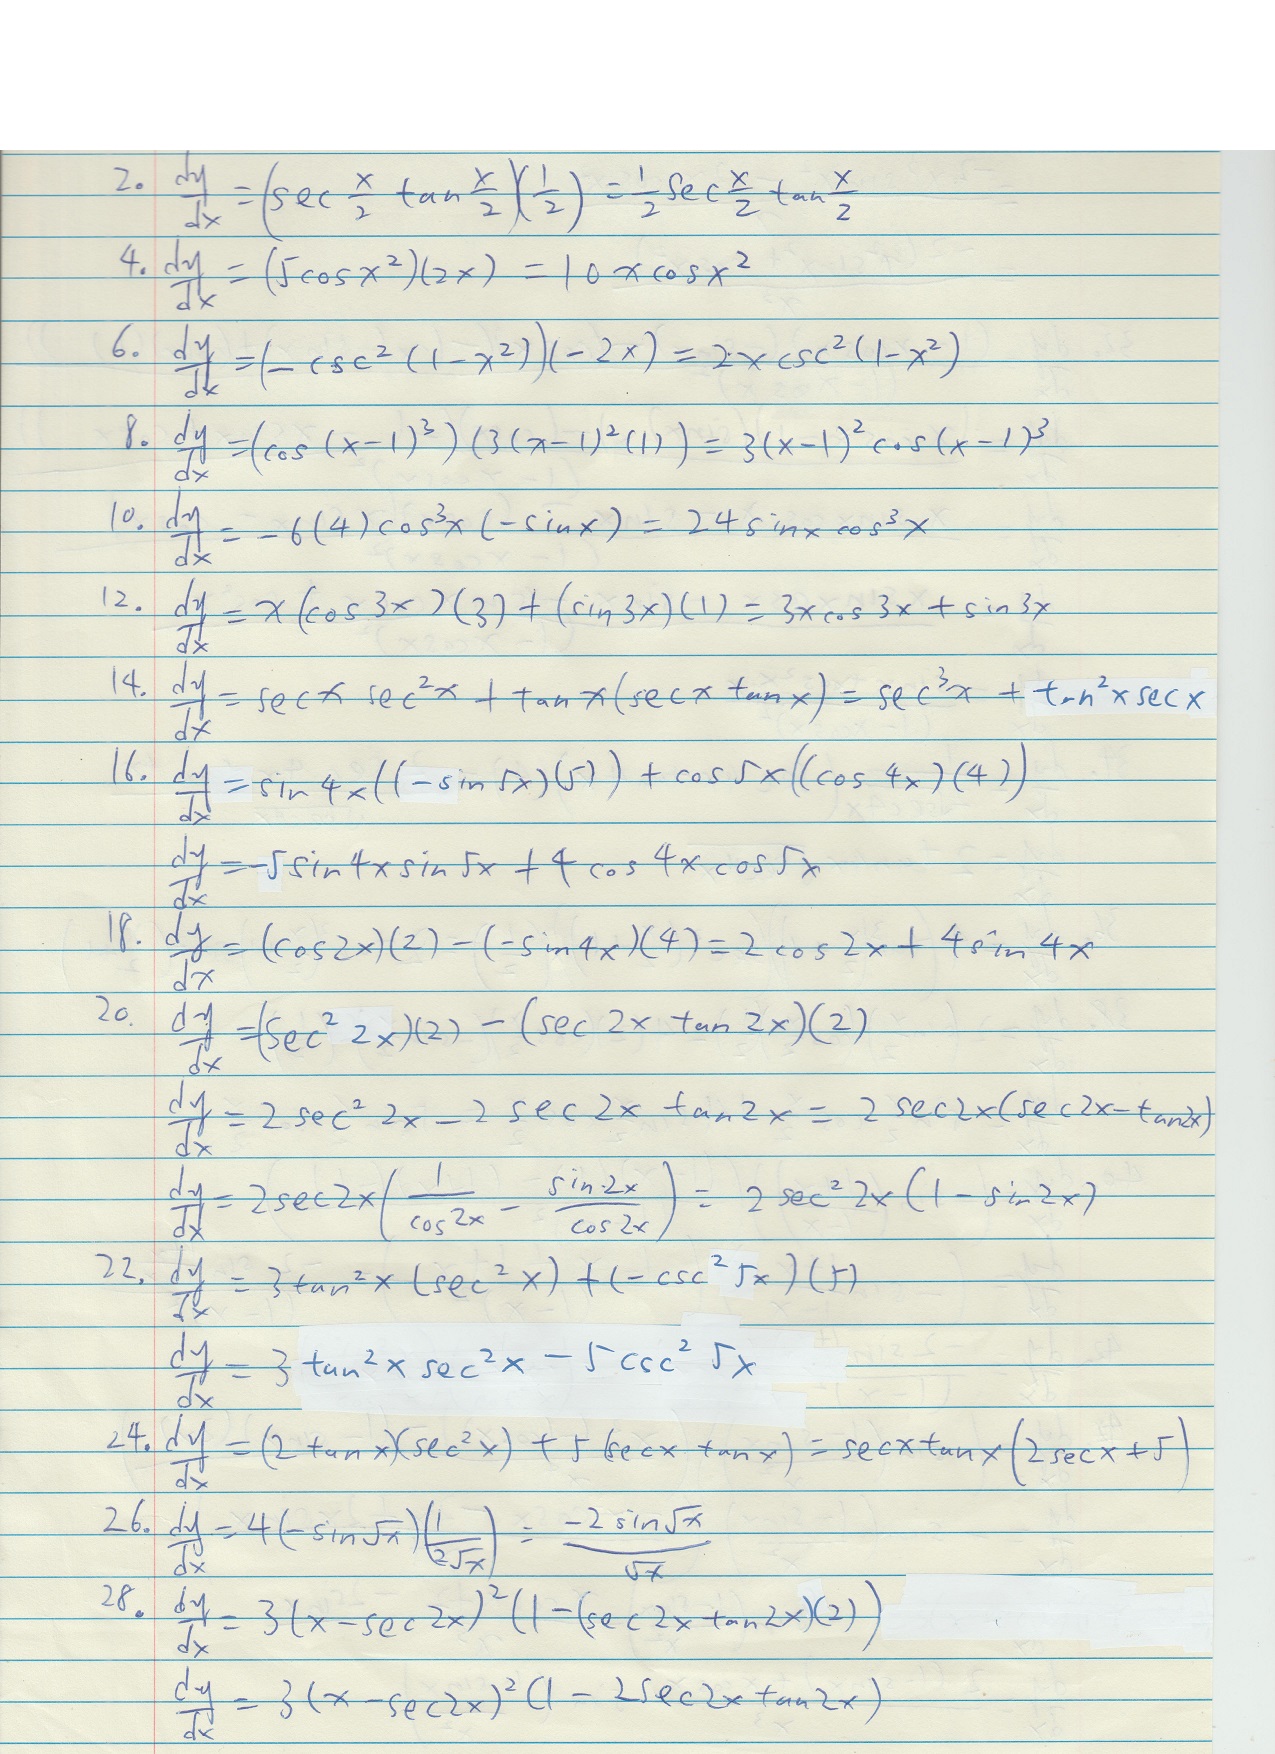 2. dy/dx = (sec x/2 tan x/2)(1/2) = 1/2 sec x/2 tan x/2
4. dy/dx = (5cosx²)(2x) = 10xcosx²
6. dy/dx = (-csc²(1-x²))(-2x) = 2xcsc²(1-x²)
8. dy/dx = (cos(x-1)³)(3(x-1)²(1)) = 3(x-1)²cos(x-1)³
10. dy/dx = -6(4)cos³x(-sinx) = 24sinxcos³x
12. dy/dx = x(cos3x)(3)+(sin3x)(1) = 3xcos3x+sin3x
14. dy/dx = secx sec²x + tanx(secx tanx) = sec³x + tan²xsecx
16. dy/dx = sin4x((-sin5x)(5)) + cos5x((cos4x)(4))
dy/dx = -5sin4xsin5x + 4cos4xcos5x
18. dy/dx = (cos2x)(2)-(-sin4x)(4) = 2cos2x + 4sin4x
20. dy/dx = (sec²2x)(2) - (sec2x tan2x)(2)
dy/dx = 2sec²2x - 2sec2x tan2x = 2sec2x(sec2x-tan2x)
dy/dx = 2sec2x(1/cos2x - sin2x/cos2x) = 2sec²2x(1-sin2x)
22. dy/dx = 3tan²x(sec²x)+(-csc²5x)(5)
dy/dx = 3tan²xsec²x - 5csc²5x
24. dy/dx = (2tanx)(sec²x) + 5(secx tanx) = secxtanx(2secx+5)
26. dy/dx = 4(-sin√x)(1/2√x) = -2sin√x/√x
28. dy/dx = 3(x-sec2x)²(1-(sec2xtan2x)(2))
dy/dx = 3(x-sec2x)²(1-2sec2xtan2x)